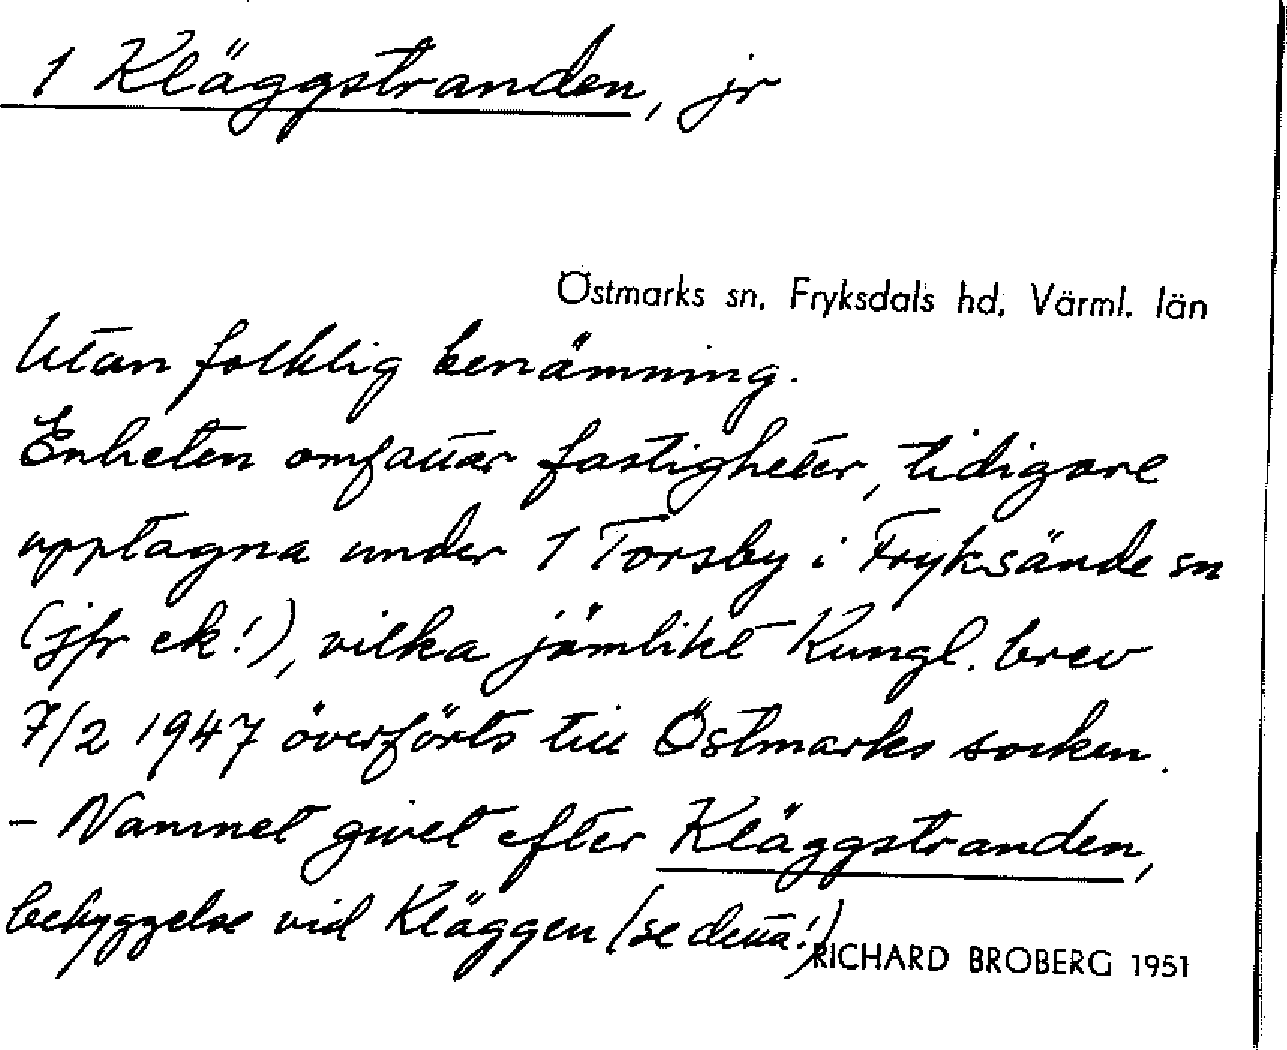 1 Kläggstranden, jr
Östmarks sn. Fryksdals hd, Värml. län
Utan folklig benämning.
Enheten omfattar fastigheter, tidigare
upptagna under 1 Torsby i Fryksände sn
(jfr ek!), vilka jämlikt Kungl. brev
7/2 1947 överförts till Östmarks socken.
- Namnet givet efter Kläggstranden,
bebyggelse vid Kläggen (se detta!)
RICHARD BROBERG 1951